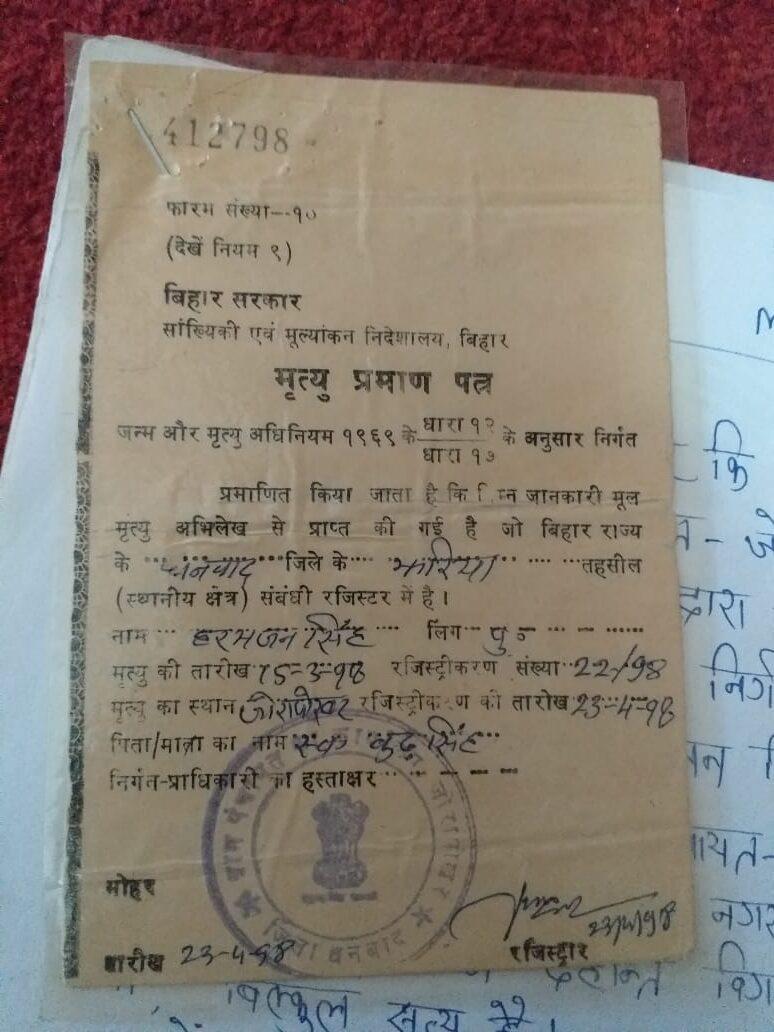 412798
फारम संख्या--१०
(देखें नियम ९)
बिहार सरकार
सांख्यिकी एवं मूल्यांकन निदेशालय, बिहार
मृत्यु प्रमाण पत्र
जन्म और मृत्यु अधिनियम १९६९ के धारा १२ / धारा १७ के अनुसार निर्गत
प्रमाणित किया जाता है कि निम्न जानकारी मूल
मृत्यु अभिलेख से प्राप्त की गई है जो बिहार राज्य
के धनबाद जिले के झरिया तहसील
(स्थानीय क्षेत्र) संबंधी रजिस्टर में है।
नाम हरभजन सिंह लिंग पु०
मृत्यु की तारीख 15-3-98 रजिस्ट्रीकरण संख्या 22/98
मृत्यु का स्थान रजिस्ट्रीकरण की तारीख 23-4-98
पिता/माता का नाम सिंह
निर्गत-प्राधिकारी का हस्ताक्षर
ग्राम
जिला धनबाद
मोहर
तारीख 23-4-98
रजिस्ट्रार
कि
द्वारा
नगर
बिल्कुल सत्य है।